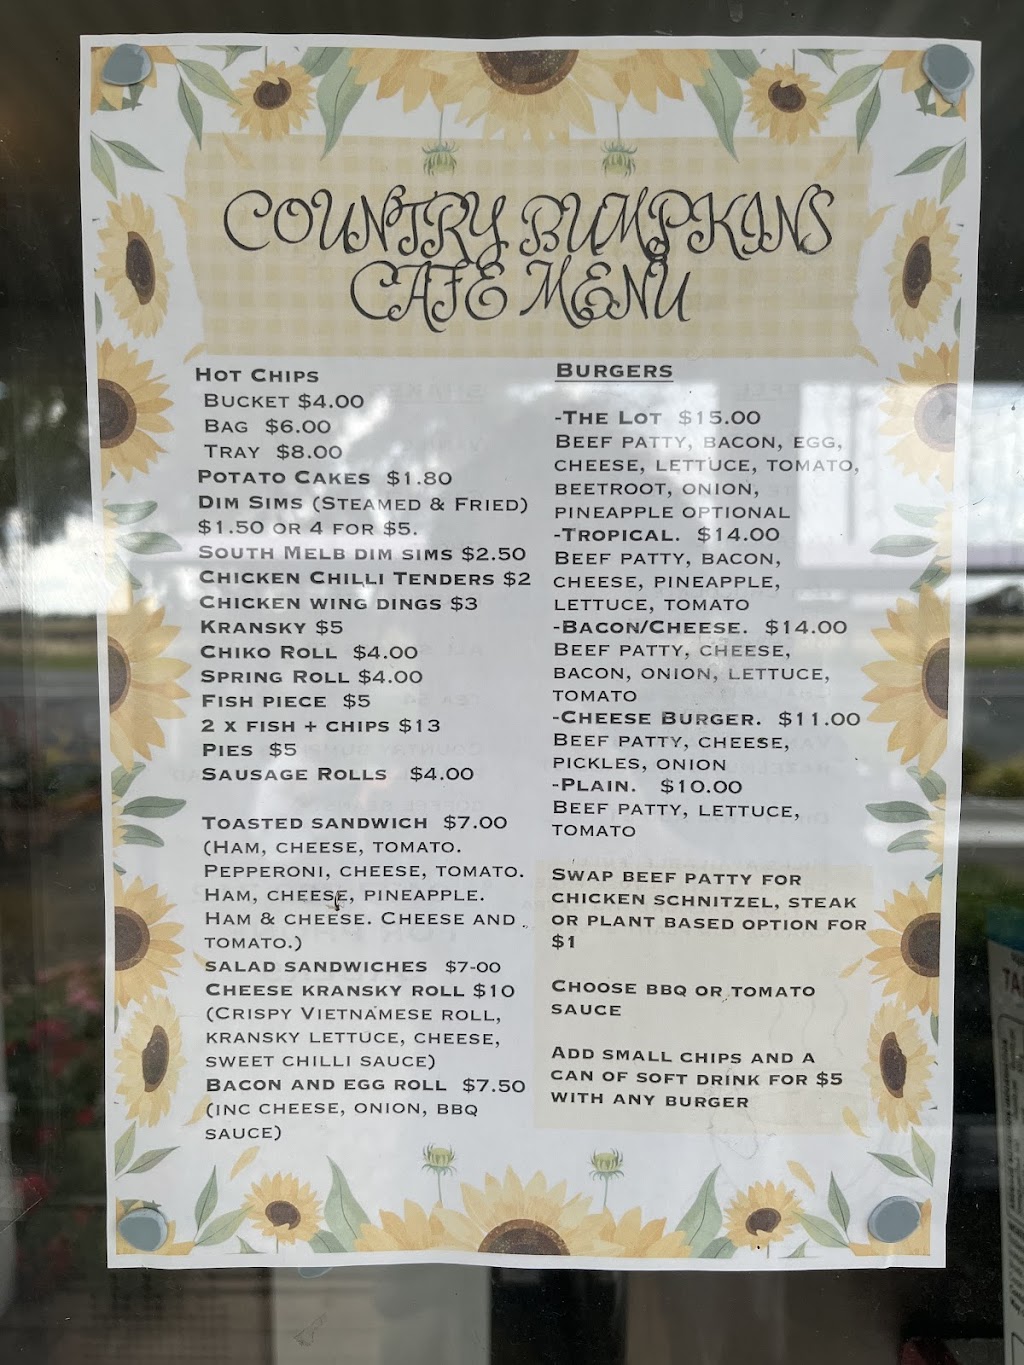 COUNTRY BUMPKINS
CAFE MENU
HOT CHIPS
BUCKET $4.00
BAG $6.00
TRAY $8.00
POTATO CAKES $1.80
DIM SIMS (STEAMED & FRIED)
$1.50 OR 4 FOR $5.
SOUTH MELB DIM SIMS $2.50
CHICKEN CHILLI TENDERS $2
CHICKEN WING DINGS $3
KRANSKY $5
CHIKO ROLL $4.00
SPRING ROLL $4.00
FISH PIECE $5
2 X FISH + CHIPS $13
PIES $5
SAUSAGE ROLLS $4.00
TOASTED SANDWICH $7.00
(HAM, CHEESE, TOMATO.
PEPPERONI, CHEESE, TOMATO.
HAM, CHEESE, PINEAPPLE.
HAM & CHEESE. CHEESE AND
TOMATO.)
SALAD SANDWICHES $7-00
CHEESE KRANSKY ROLL $10
(CRISPY VIETNAMESE ROLL,
KRANSKY LETTUCE, CHEESE,
SWEET CHILLI SAUCE)
BACON AND EGG ROLL $7.50
(INC CHEESE, ONION, BBQ
SAUCE)
BURGERS
-THE LOT $15.00
BEEF PATTY, BACON, EGG,
CHEESE, LETTUCE, TOMATO,
BEETROOT, ONION,
PINEAPPLE OPTIONAL
-TROPICAL. $14.00
BEEF PATTY, BACON,
CHEESE, PINEAPPLE,
LETTUCE, TOMATO
-BACON/CHEESE. $14.00
BEEF PATTY, CHEESE,
BACON, ONION, LETTUCE,
TOMATO
-CHEESE BURGER. $11.00
BEEF PATTY, CHEESE,
PICKLES, ONION
-PLAIN. $10.00
BEEF PATTY, LETTUCE,
TOMATO
SWAP BEEF PATTY FOR
CHICKEN SCHNITZEL, STEAK
OR PLANT BASED OPTION FOR
$1
CHOOSE BBQ OR TOMATO
SAUCE
ADD SMALL CHIPS AND A
CAN OF SOFT DRINK FOR $5
WITH ANY BURGER